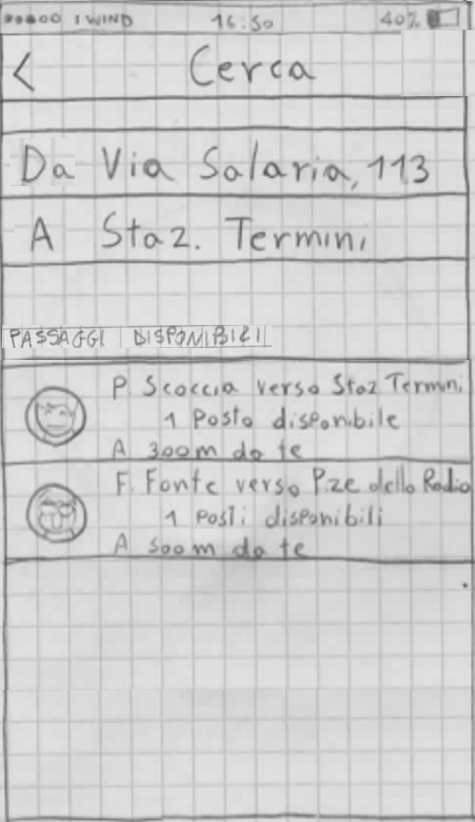 WIND 16:50 40%
< Cerca
Da Via Salaria, 113
A Staz. Termini
PASSAGGI DISPONIBILI
P. Scoccia verso Staz Termini
1 Posto disponibile
A 300m da te
F. Fonte verso P.ze della Radio
1 Posti disponibili
A 500m da te